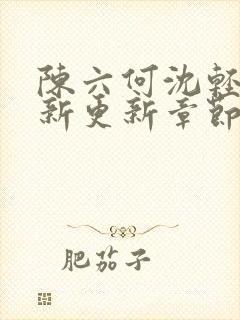 陳六何沈輕
新更新章節
肥茄子